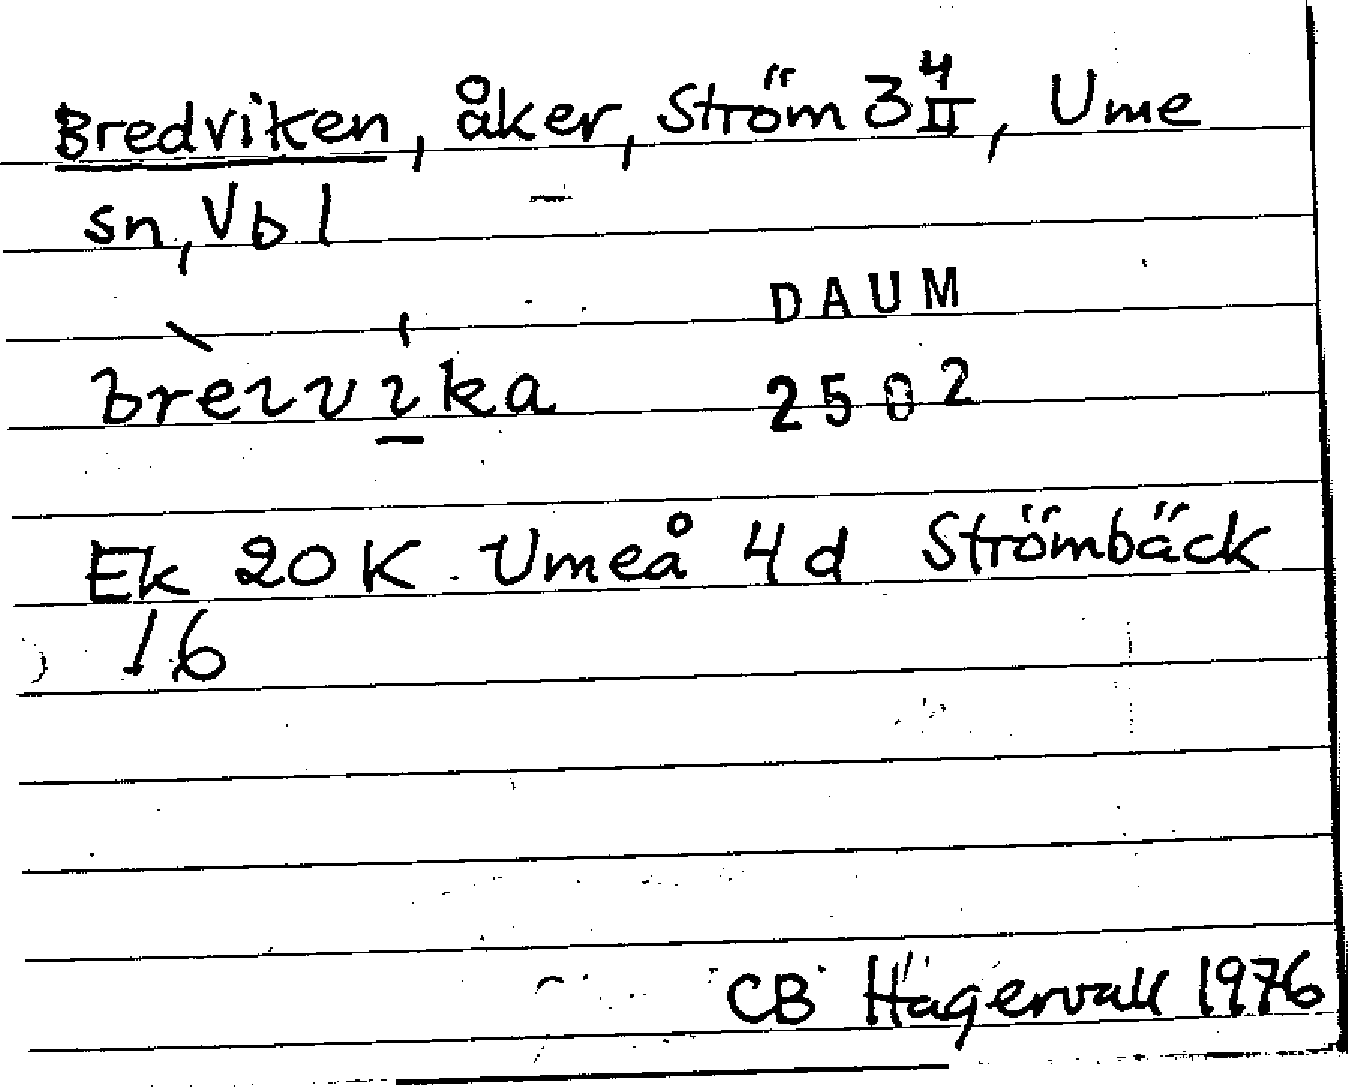 Bredviken, åker, Ström 3 4/II, Ume
sn, Vbl
DAUM
breivika
2502
Ek 20 K Umeå 4 d Strömbäck
16
CB Hägervall 1976